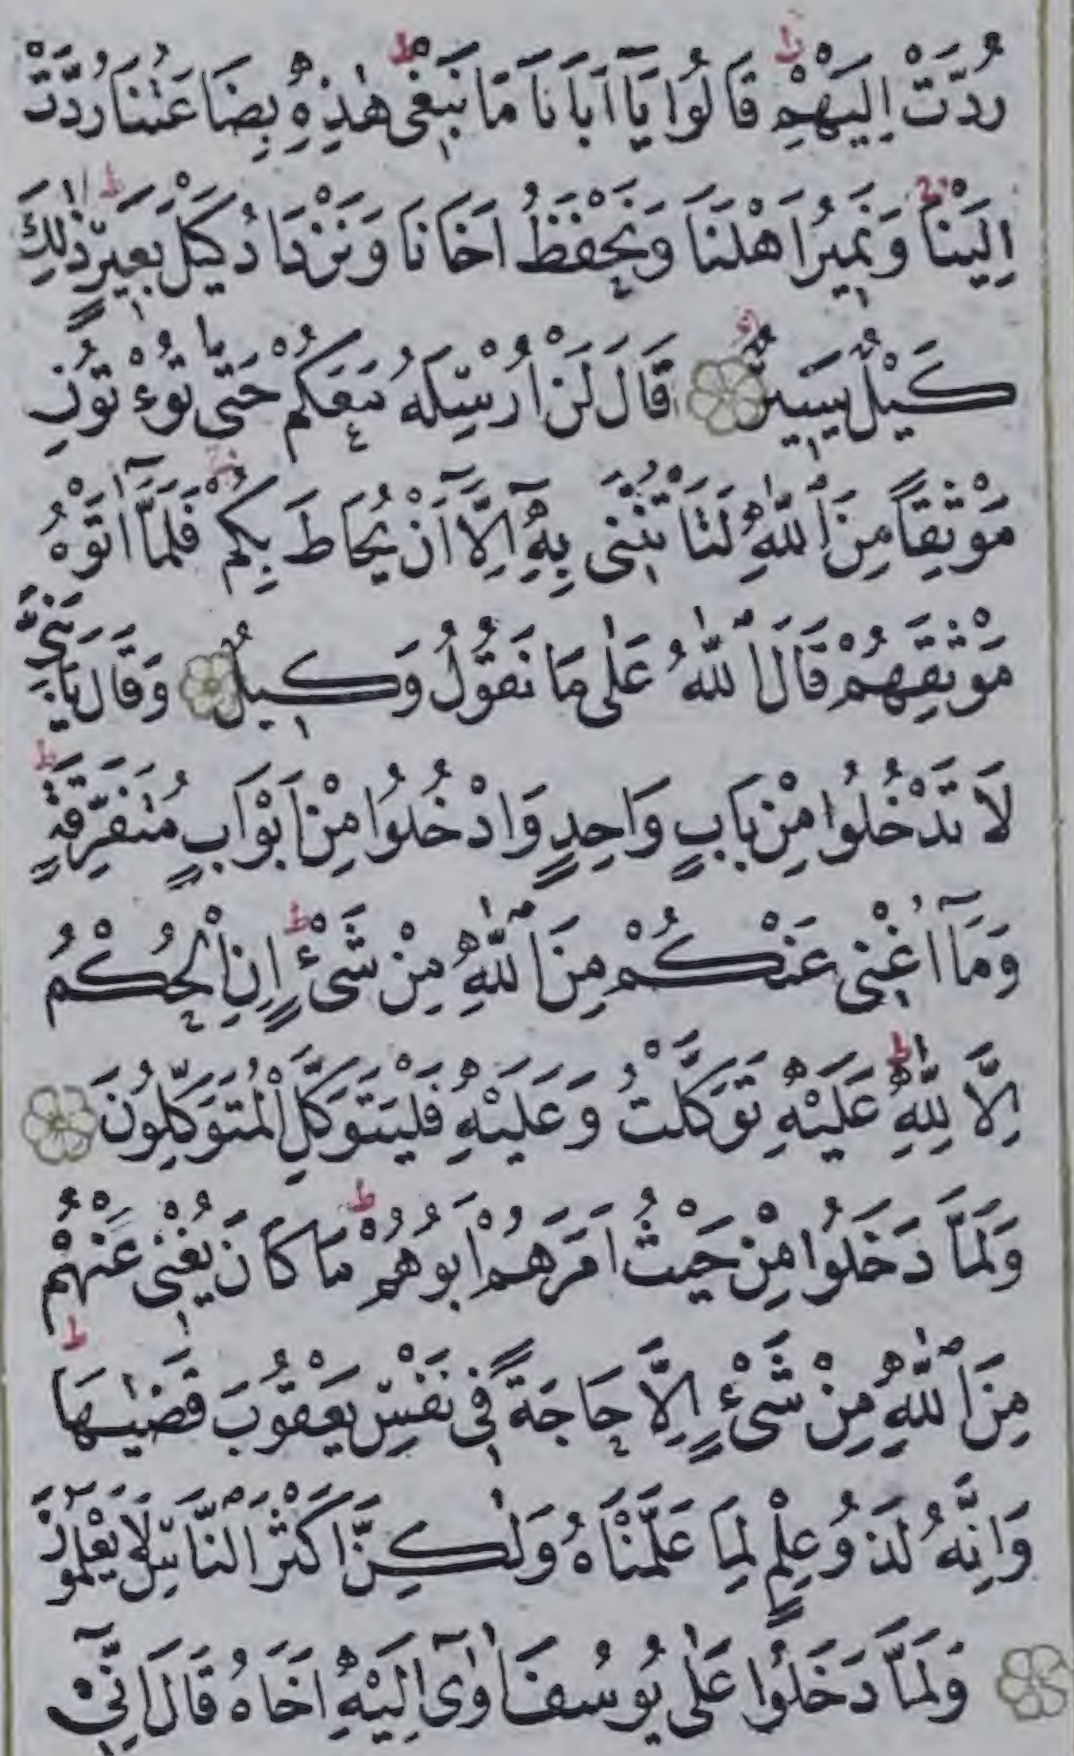 رُدَّتْ اِلَيْهِمْ ط قَالُوا يَآ اَبَانَا مَا نَبْغٖى ط هٰذِهٖ بِضَاعَتُنَا رُدَّتْ
اِلَيْنَا ج وَنَمٖيرُ اَهْلَنَا وَنَحْفَظُ اَخَانَا وَنَزْدَادُ كَيْلَ بَعٖيرٍ ط ذٰلِكَ
كَيْلٌ يَسٖيرٌ ۝ قَالَ لَنْ اُرْسِلَهُ مَعَكُمْ حَتّٰى تُؤْتُونِ
مَوْثِقًا مِنَ اللّٰهِ لَتَأْتُنَّنٖى بِهٖٓ اِلَّآ اَنْ يُحَاطَ بِكُمْ ج فَلَمَّآ اٰتَوْهُ
مَوْثِقَهُمْ قَالَ اللّٰهُ عَلٰى مَا نَقُولُ وَكٖيلٌ ۝ وَقَالَ يَابَنِىَّ
لَا تَدْخُلُوا مِنْ بَابٍ وَاحِدٍ وَادْخُلُوا مِنْ اَبْوَابٍ مُتَفَرِّقَةٍ ط
وَمَآ اُغْنٖى عَنْكُمْ مِنَ اللّٰهِ مِنْ شَىْءٍ ط اِنِ الْحُكْمُ
اِلَّا لِلّٰهِ ط عَلَيْهِ تَوَكَّلْتُ وَعَلَيْهِ فَلْيَتَوَكَّلِ الْمُتَوَكِّلُونَ ۝
وَلَمَّا دَخَلُوا مِنْ حَيْثُ اَمَرَهُمْ اَبُوهُمْ ط مَا كَانَ يُغْنٖى عَنْهُمْ
مِنَ اللّٰهِ مِنْ شَىْءٍ اِلَّا حَاجَةً فٖى نَفْسِ يَعْقُوبَ قَضٰيهَا ط
وَاِنَّهُ لَذُو عِلْمٍ لِمَا عَلَّمْنَاهُ وَلٰكِنَّ اَكْثَرَ النَّاسِ لَا يَعْلَمُونَ
۝ وَلَمَّا دَخَلُوا عَلٰى يُوسُفَ اٰوٰٓى اِلَيْهِ اَخَاهُ قَالَ اِنّٖٓى